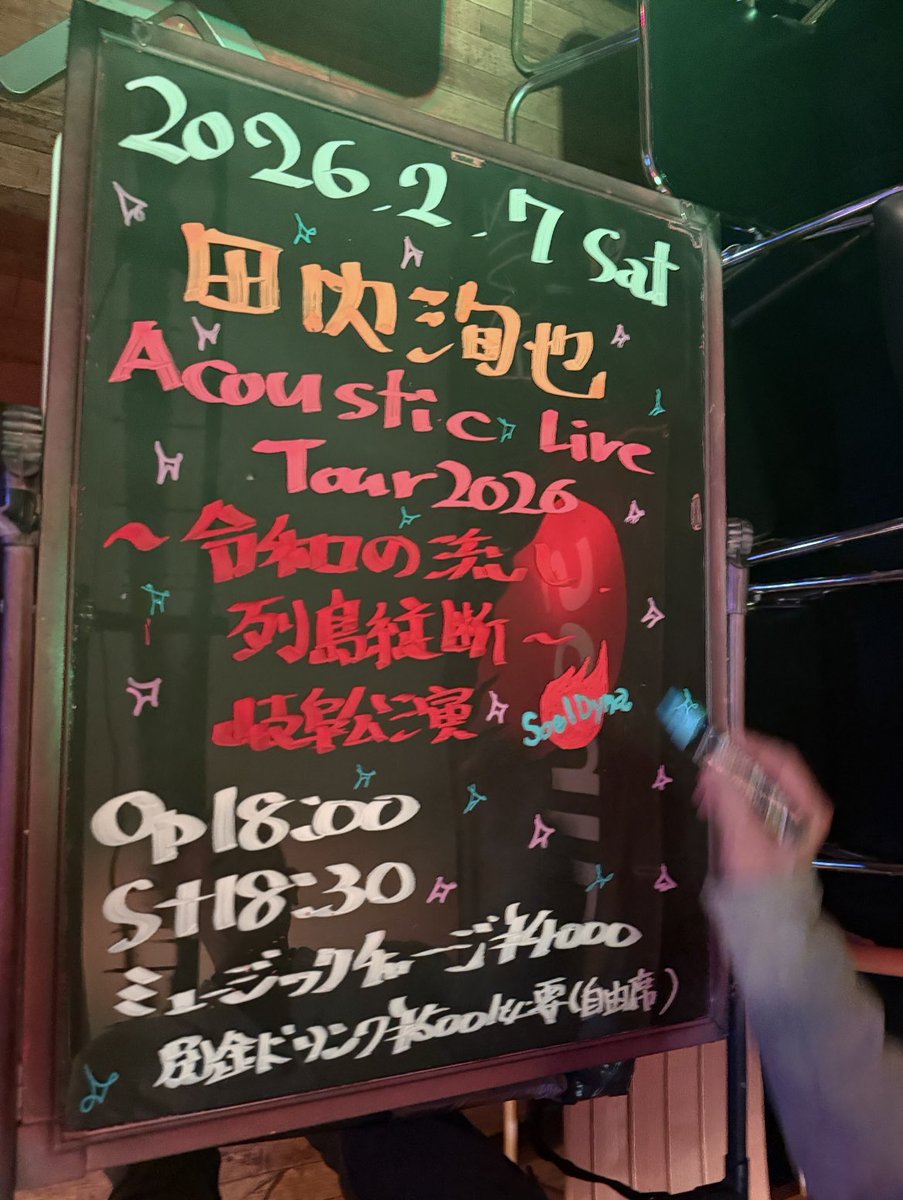 2026.2.7 Sat
田内洵也
Acoustic Live
Tour2026
～令和の流し
列島縦断～
岐阜公演
Soul Dyna
Op18:00
St18:30
ミュージックチャージ¥4000
別途ドリンク¥600〜必要(自由席)